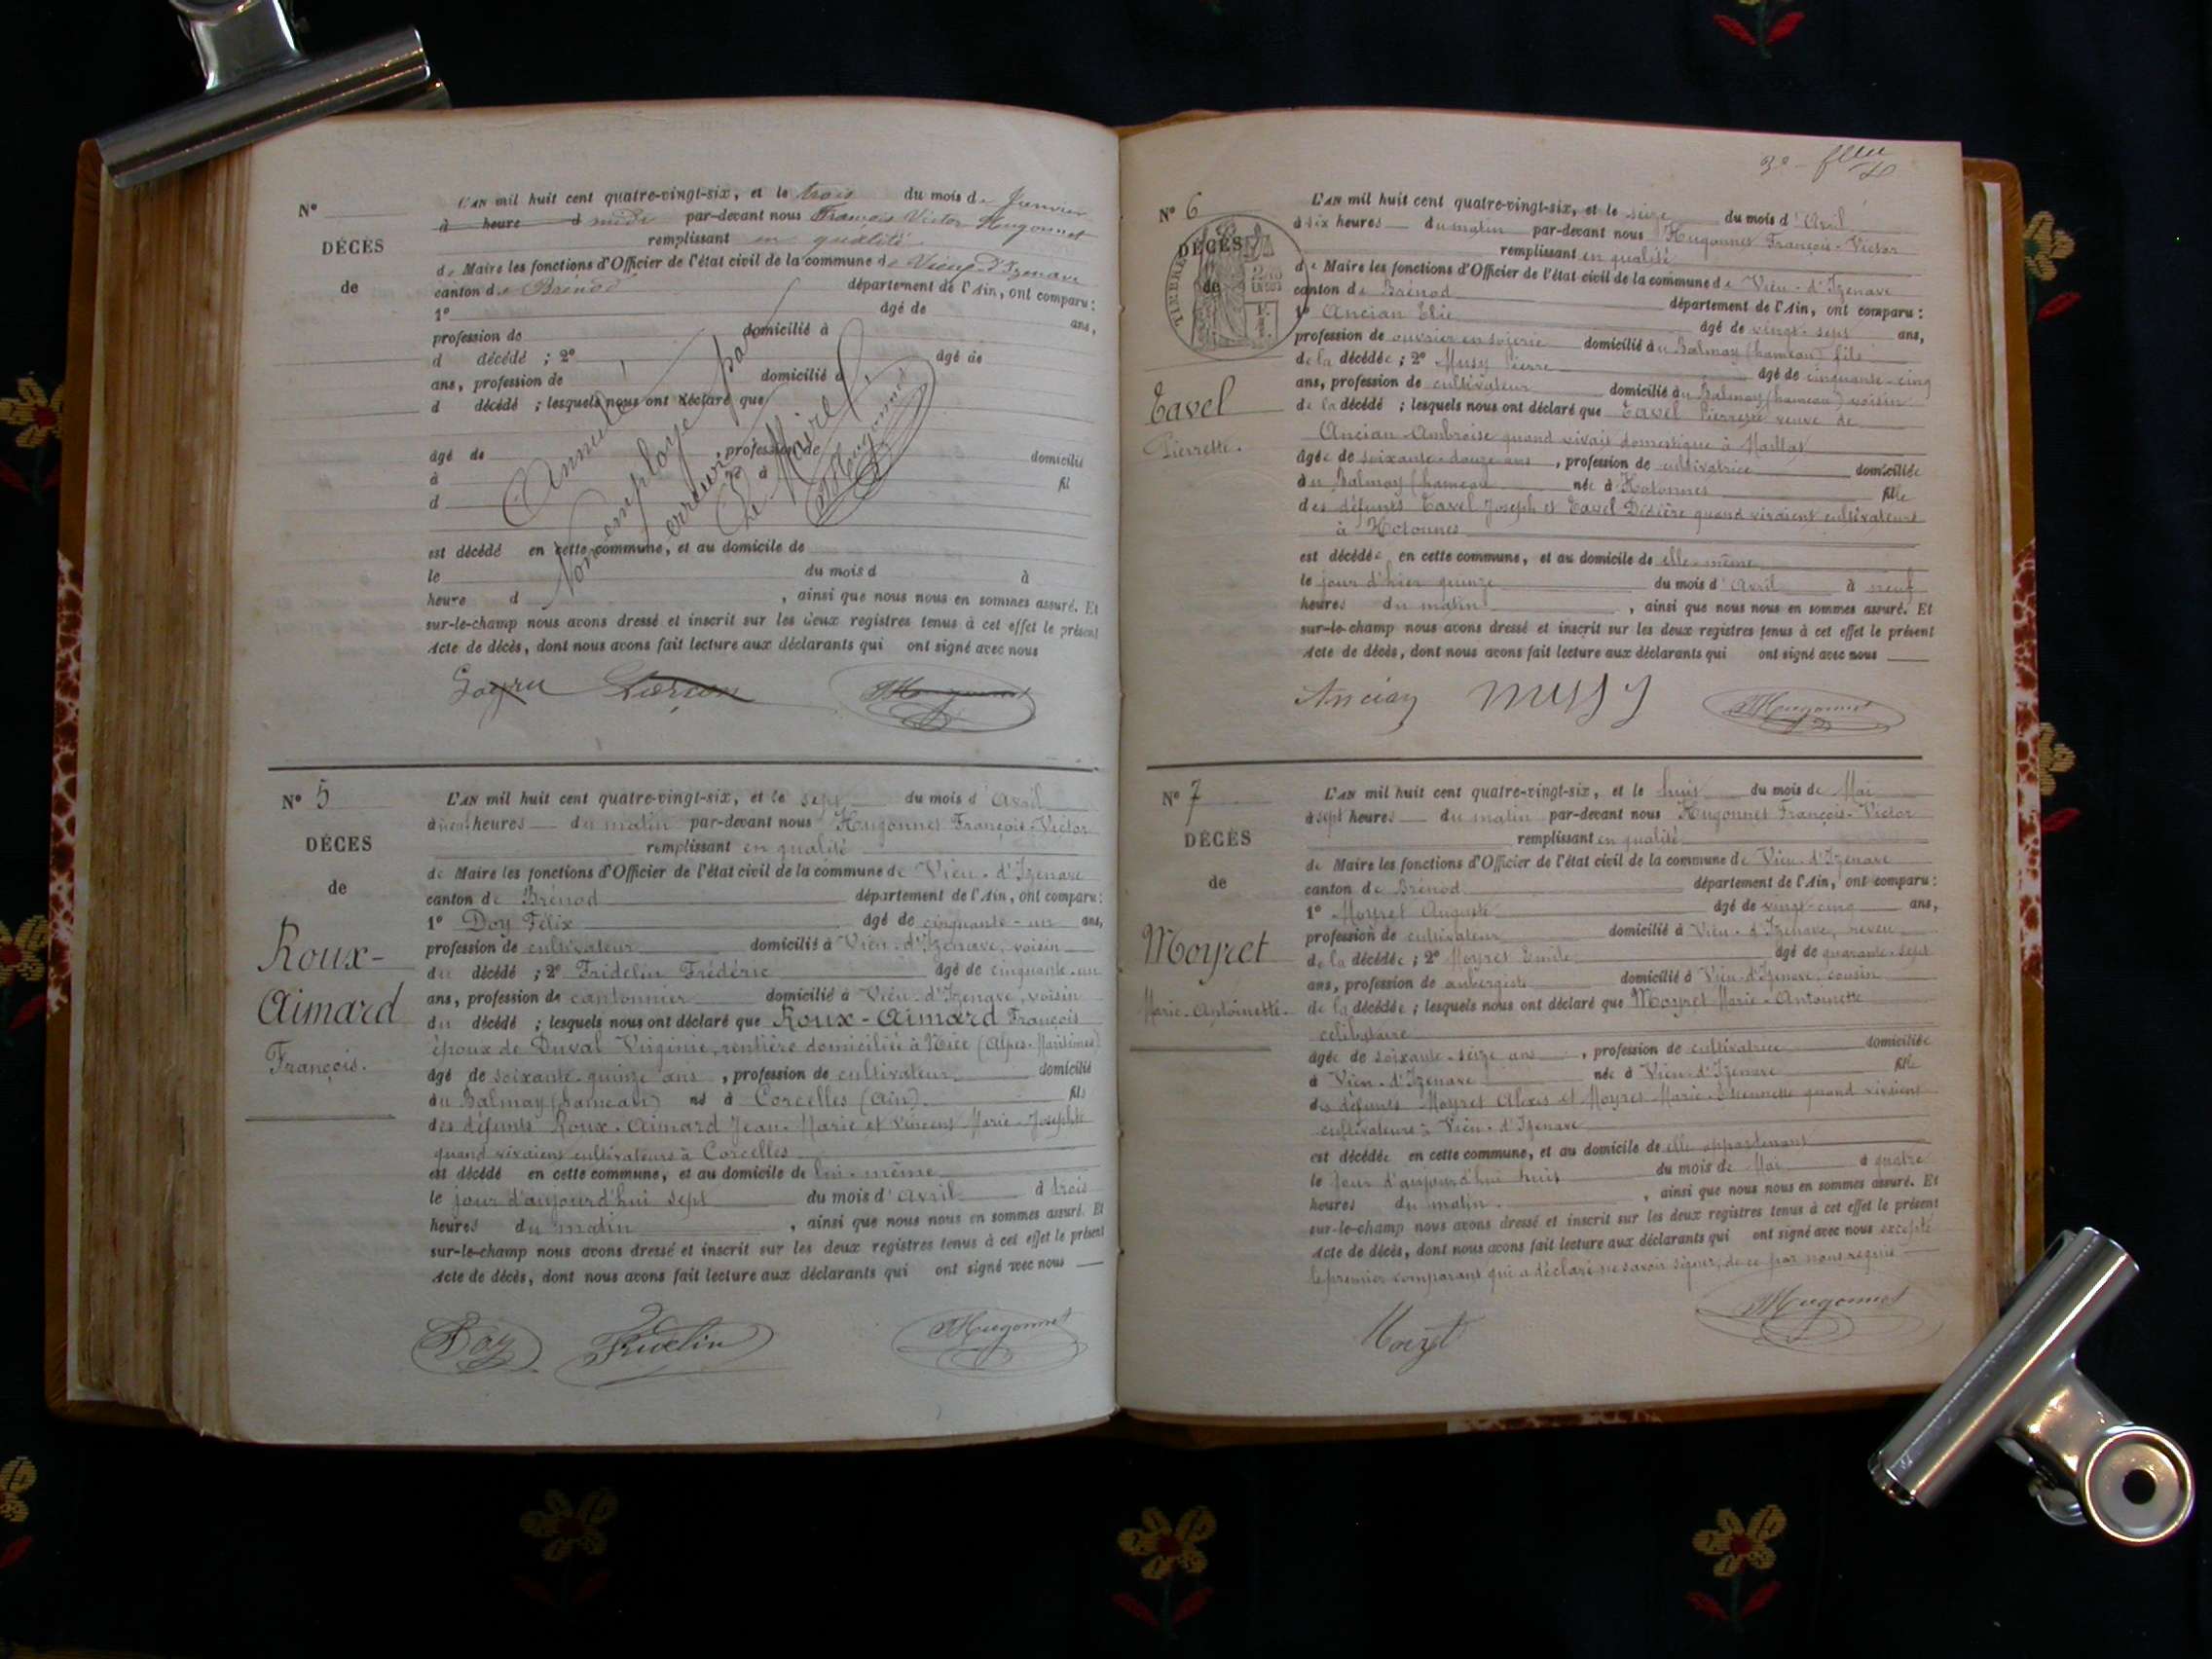 Nº
DÉCÈS
de
L'AN mil huit cent quatre-vingt-six, et le trois du mois de Janvier
à heure d midi par-devant nous François Victor Hugonnet
remplissant en qualité
de Maire les fonctions d'Officier de l'état civil de la commune de Vieu-d'Izenave
canton de Brénod département de l'Ain, ont comparu :
1º âgé de ans,
profession de domicilié à
d décédé ; 2º âgé de
ans, profession de domicilié à
d décédé ; lesquels nous ont déclaré que
âgé de , profession de domicilié
à né à fil
d
est décédé en cette commune, et au domicile de
le du mois d à
heure d , ainsi que nous nous en sommes assuré. Et
sur-le-champ nous avons dressé et inscrit sur les deux registres tenus à cet effet le présent
Acte de décès, dont nous avons fait lecture aux déclarants qui ont signé avec nous
Annulé
Non employé par
erreur
Le Maire
Hugonnet
Hugonnet
Nº 5
DÉCÈS
de
Roux-
Aimard
François.
L'AN mil huit cent quatre-vingt-six, et le sept du mois d'Avril
à neuf heures du matin par-devant nous Hugonnet François-Victor
remplissant en qualité
de Maire les fonctions d'Officier de l'état civil de la commune de Vieu-d'Izenave
canton de Brénod département de l'Ain, ont comparu :
1º Doy Félix âgé de cinquante-un ans,
profession de cultivateur domicilié à Vieu-d'Izenave, voisin
du décédé ; 2º Fridelin Frédéric âgé de cinquante-un
ans, profession de cantonnier domicilié à Vieu-d'Izenave, voisin
du décédé ; lesquels nous ont déclaré que Roux-Aimard François
époux de Duval Virginie, rentière domiciliée à Nice (Alpes-Maritimes)
âgé de soixante-quinze ans , profession de cultivateur domicilié
au Balmay (hameau) né à Corcelles (Ain) fils
des défunts Roux-Aimard Jean-Marie et Vincent Marie-Josephte
quand vivaient cultivateurs à Corcelles
est décédé en cette commune, et au domicile de lui-même
le jour d'aujourd'hui sept du mois d'Avril à trois
heures du matin , ainsi que nous nous en sommes assuré. Et
sur-le-champ nous avons dressé et inscrit sur les deux registres tenus à cet effet le présent
Acte de décès, dont nous avons fait lecture aux déclarants qui ont signé avec nous
Doy Fridelin Hugonnet
Nº 6
DÉCÈS
de
TIMBRE
Tavel
Pierrette.
L'AN mil huit cent quatre-vingt-six, et le seize du mois d'Avril
à six heures du matin par-devant nous Hugonnet François-Victor
remplissant en qualité
de Maire les fonctions d'Officier de l'état civil de la commune de Vieu-d'Izenave
canton de Brénod département de l'Ain, ont comparu :
1º Ancian Elie âgé de vingt-sept ans,
profession de ouvrier en soierie domicilié au Balmay (hameau) fils
de la décédée ; 2º Mussy Pierre âgé de cinquante-cinq
ans, profession de cultivateur domicilié au Balmay (hameau) voisin
de la décédé ; lesquels nous ont déclaré que Tavel Pierrette veuve de
Ancian Ambroise quand vivait domestique à Maillat
âgée de soixante-douze ans , profession de cultivatrice domiciliée
au Balmay (hameau née à Hotonnes fille
des défunts Tavel Joseph et Tavel Désière quand vivaient cultivateurs
à Hotonnes
est décédée en cette commune, et au domicile de elle-même
le jour d'hier quinze du mois d'Avril à neuf
heures du matin , ainsi que nous nous en sommes assuré. Et
sur-le-champ nous avons dressé et inscrit sur les deux registres tenus à cet effet le présent
Acte de décès, dont nous avons fait lecture aux déclarants qui ont signé avec nous
Ancian Mussy Hugonnet
Nº 7
DÉCÈS
de
Moyret
Marie-Antoinette.
L'AN mil huit cent quatre-vingt-six, et le huit du mois de Mai
à sept heures du matin par-devant nous Hugonnet François-Victor
remplissant en qualité
de Maire les fonctions d'Officier de l'état civil de la commune de Vieu-d'Izenave
canton de Brénod département de l'Ain, ont comparu :
1º Moyret Auguste âgé de vingt-cinq ans,
profession de cultivateur domicilié à Vieu-d'Izenave, neveu
de la décédée ; 2º Moyret Emile âgé de quarante-sept
ans, profession de aubergiste domicilié à Vieu-d'Izenave, cousin
de la décédée ; lesquels nous ont déclaré que Moyret Marie-Antoinette
célibataire
âgée de soixante-seize ans , profession de cultivatrice domiciliée
à Vieu-d'Izenave née à Vieu-d'Izenave fille
des défunts Moyret Alexis et Moyret Marie-Etiennette quand vivaient
cultivateurs à Vieu-d'Izenave
est décédée en cette commune, et au domicile de elle appartenant
le jour d'aujourd'hui huit du mois de Mai à quatre
heures du matin. , ainsi que nous nous en sommes assuré. Et
sur-le-champ nous avons dressé et inscrit sur les deux registres tenus à cet effet le présent
Acte de décès, dont nous avons fait lecture aux déclarants qui ont signé avec nous excepté
le premier comparant qui a déclaré ne savoir signer, de ce par nous requis
Hugonnet